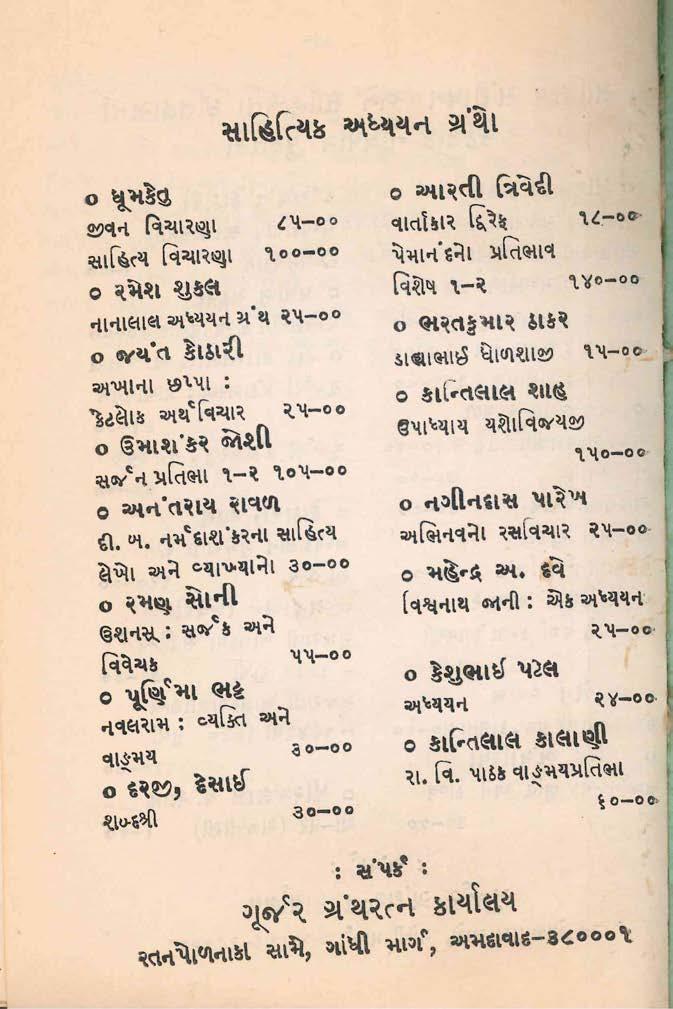 સાહિત્યિક અધ્યયન ગ્રંથો
૦ ધૂમકેતુ
જીવન વિચારણા ૮૫-૦૦
સાહિત્ય વિચારણા ૧૦૦-૦૦
૦ રમેશ શુકલ
નાનાલાલ અધ્યયન ગ્રંથ ૨૫-૦૦
૦ જયંત કોઠારી
અખાના છપ્પા :
કેટલોક અર્થવિચાર ૨૫-૦૦
૦ ઉમાશંકર જોશી
સર્જન પ્રતિભા ૧-૨ ૧૦૫-૦૦
૦ અનંતરાય રાવળ
દી. બ. નર્મદાશંકરના સાહિત્ય
લેખો અને વ્યાખ્યાનો ૩૦-૦૦
૦ રમણ સોની
ઉશનસ્ : સર્જક અને
વિવેચક ૫૫-૦૦
૦ પૂર્ણિમા ભટ્ટ
નવલરામ : વ્યક્તિ અને
વાઙ્મય ૩૦-૦૦
૦ દરજી, દેસાઈ
શબ્દશ્રી ૩૦-૦૦
૦ આરતી ત્રિવેદી
વાર્તાકાર દ્વિરેફ ૧૮-૦૦
પેમાનંદનો પ્રતિભાવ
વિશેષ ૧-૨ ૧૪૦-૦૦
૦ ભરતકુમાર ઠાકર
ડાહ્યાભાઈ ધોળશાજી ૧૫-૦૦
૦ કાન્તિલાલ શાહ
ઉપાધ્યાય યશોવિજયજી
૧૫૦-૦૦
૦ નગીનદાસ પારેખ
અભિનવનો રસવિચાર ૨૫-૦૦
૦ મહેન્દ્ર અ. દવે
વિશ્વનાથ જાની : એક અધ્યયન
૨૫-૦૦
૦ કેશુભાઈ પટેલ
અધ્યયન ૨૪-૦૦
૦ કાન્તિલાલ કાલાણી
રા. વિ. પાઠક વાઙ્મયપ્રતિભા
૬૦-૦૦
: સંપર્ક :
ગૂર્જર ગ્રંથરત્ન કાર્યાલય
રતનપોળનાકા સામે, ગાંધી માર્ગ, અમદાવાદ-૩૮૦૦૦૧